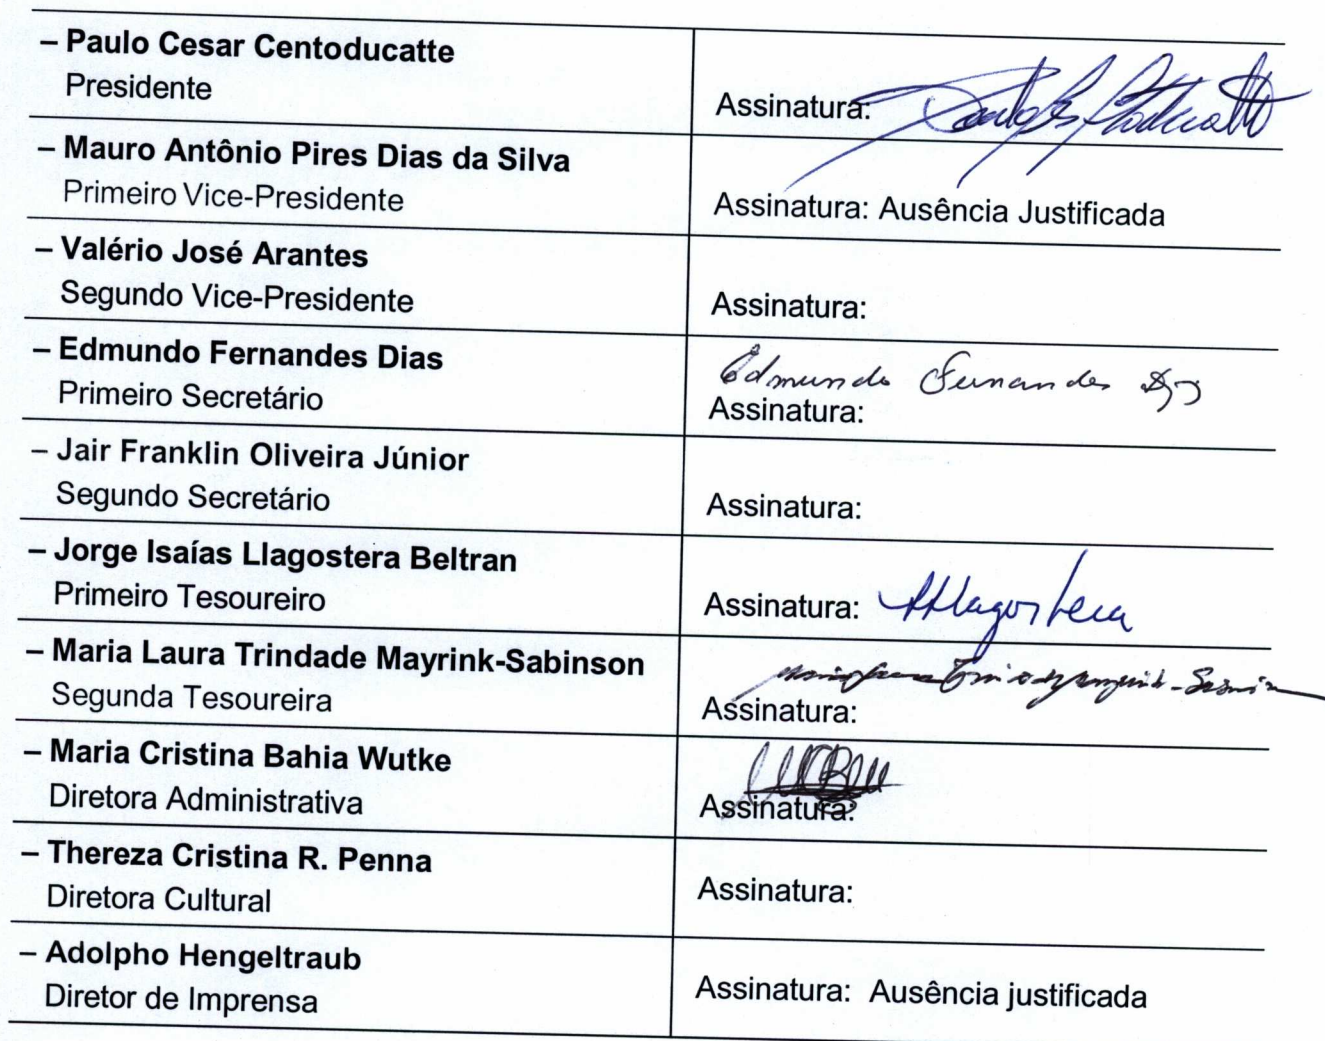 – Paulo Cesar Centoducatte
Presidente
Assinatura:
– Mauro Antônio Pires Dias da Silva
Primeiro Vice-Presidente
Assinatura: Ausência Justificada
– Valério José Arantes
Segundo Vice-Presidente
Assinatura:
– Edmundo Fernandes Dias
Primeiro Secretário
Edmundo Fernandes Dias
Assinatura:
– Jair Franklin Oliveira Júnior
Segundo Secretário
Assinatura:
– Jorge Isaías Llagostera Beltran
Primeiro Tesoureiro
Assinatura: Llagostera
– Maria Laura Trindade Mayrink-Sabinson
Segunda Tesoureira
Assinatura:
– Maria Cristina Bahia Wutke
Diretora Administrativa
Assinatura:
– Thereza Cristina R. Penna
Diretora Cultural
Assinatura:
– Adolpho Hengeltraub
Diretor de Imprensa
Assinatura: Ausência justificada